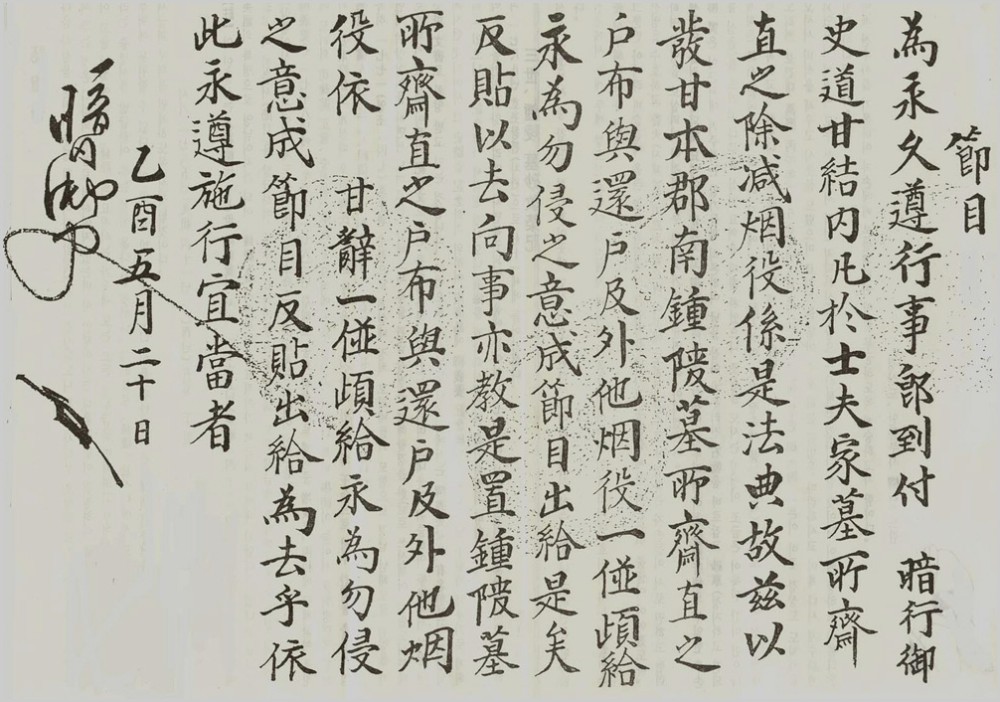 節目
為永久遵行事卽到付 暗行御
史道甘結內凡於士夫家墓所齋
直之除減烟役係是法典故玆以
發甘本郡南鍾陵墓所齋直之
戶布與還戶及外他烟役一並頉給
永為勿侵之意成節目出給是矣
反貼以去向事亦敎是置鍾陵墓
所齋直之戶布與還戶及外他烟
役依 甘辭一並頉給永為勿侵
之意成節目反貼出給為去乎依
此永遵施行宜當者
乙酉五月二十日